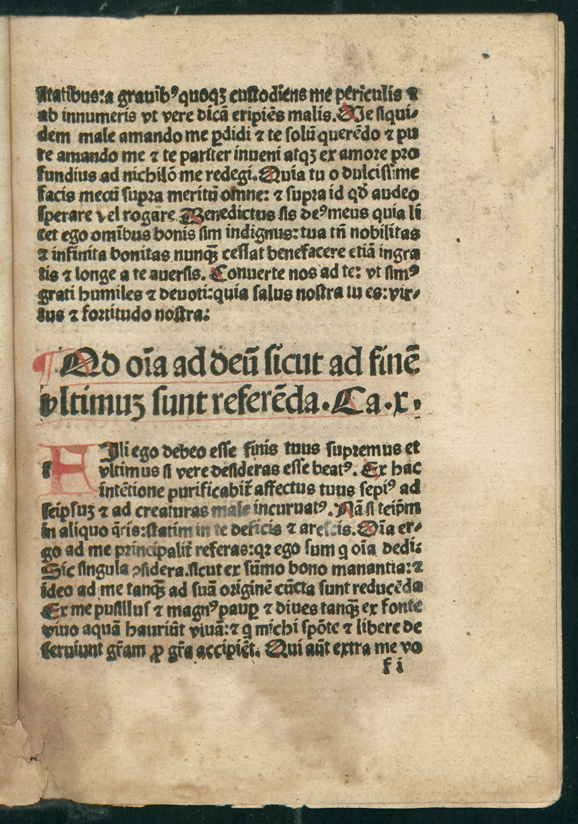 ſtatibus:a grauibꝰ quoqꝫ cuſtodiens me periculis ⁊
ab innumeris vt vere dicā eripiēs malis. Me ſiqui-
dem male amando me ꝑdidi ⁊ te ſolū querēdo ⁊ pu
re amando me ⁊ te pariter inueni atqꝫ ex amore pro
fundius ad nichilō me redegi. Quia tu o dulciſſime
facis mecū ſupra meritū omne: ⁊ ſupra id qd̄ audeo
ſperare vel rogare Benedictus ſis deꝰ meus quia li
cet ego omībus bonis ſim indignus: tua tn̄ nobilitas
⁊ infinita bonitas nunqꝫ ceſſat benefacere etiā ingra
tis ⁊ longe a te auerſis. Conuerte nos ad te: vt ſimꝰ
grati humiles ⁊ deuoti: quia ſalus noſtra tu es: vir-
tus ⁊ fortitudo noſtra:
¶ Qd oīa ad deū ſicut ad finē
vltimuꝫ ſunt referēda. Ca. x.
Fili ego debeo eſſe finis tuus ſupremus et
vltimus ſi vere deſideras eſſe beatꝰ. Ex hac
intētione purificabit̄ affectus tuus ſepiꝰ ad
ſeipſuꝫ ⁊ ad creaturas male incuruatꝰ. Nā ſi teip̄m
in aliquo q̄ris: ſtatim in te deficis ⁊ areſcis. Oīa er-
go ad me principalit̄ referas: qꝛ ego ſum q oīa dedi:
Sic ſingula ꝯſidera. ſicut ex ſūmo bono manantia: ⁊
ideo ad me tanqꝫ ad ſuā originē cūcta ſunt reducēda
Ex me puſillus ⁊ magnꝰ paup ⁊ diues tanqꝫ ex fonte
viuo aquā hauriūt viuā: ⁊ q michi ſpōte ⁊ libere de
ſeruiunt gr̄am ꝓ gr̄a accipiēt. Qui aūt extra me vo
f i